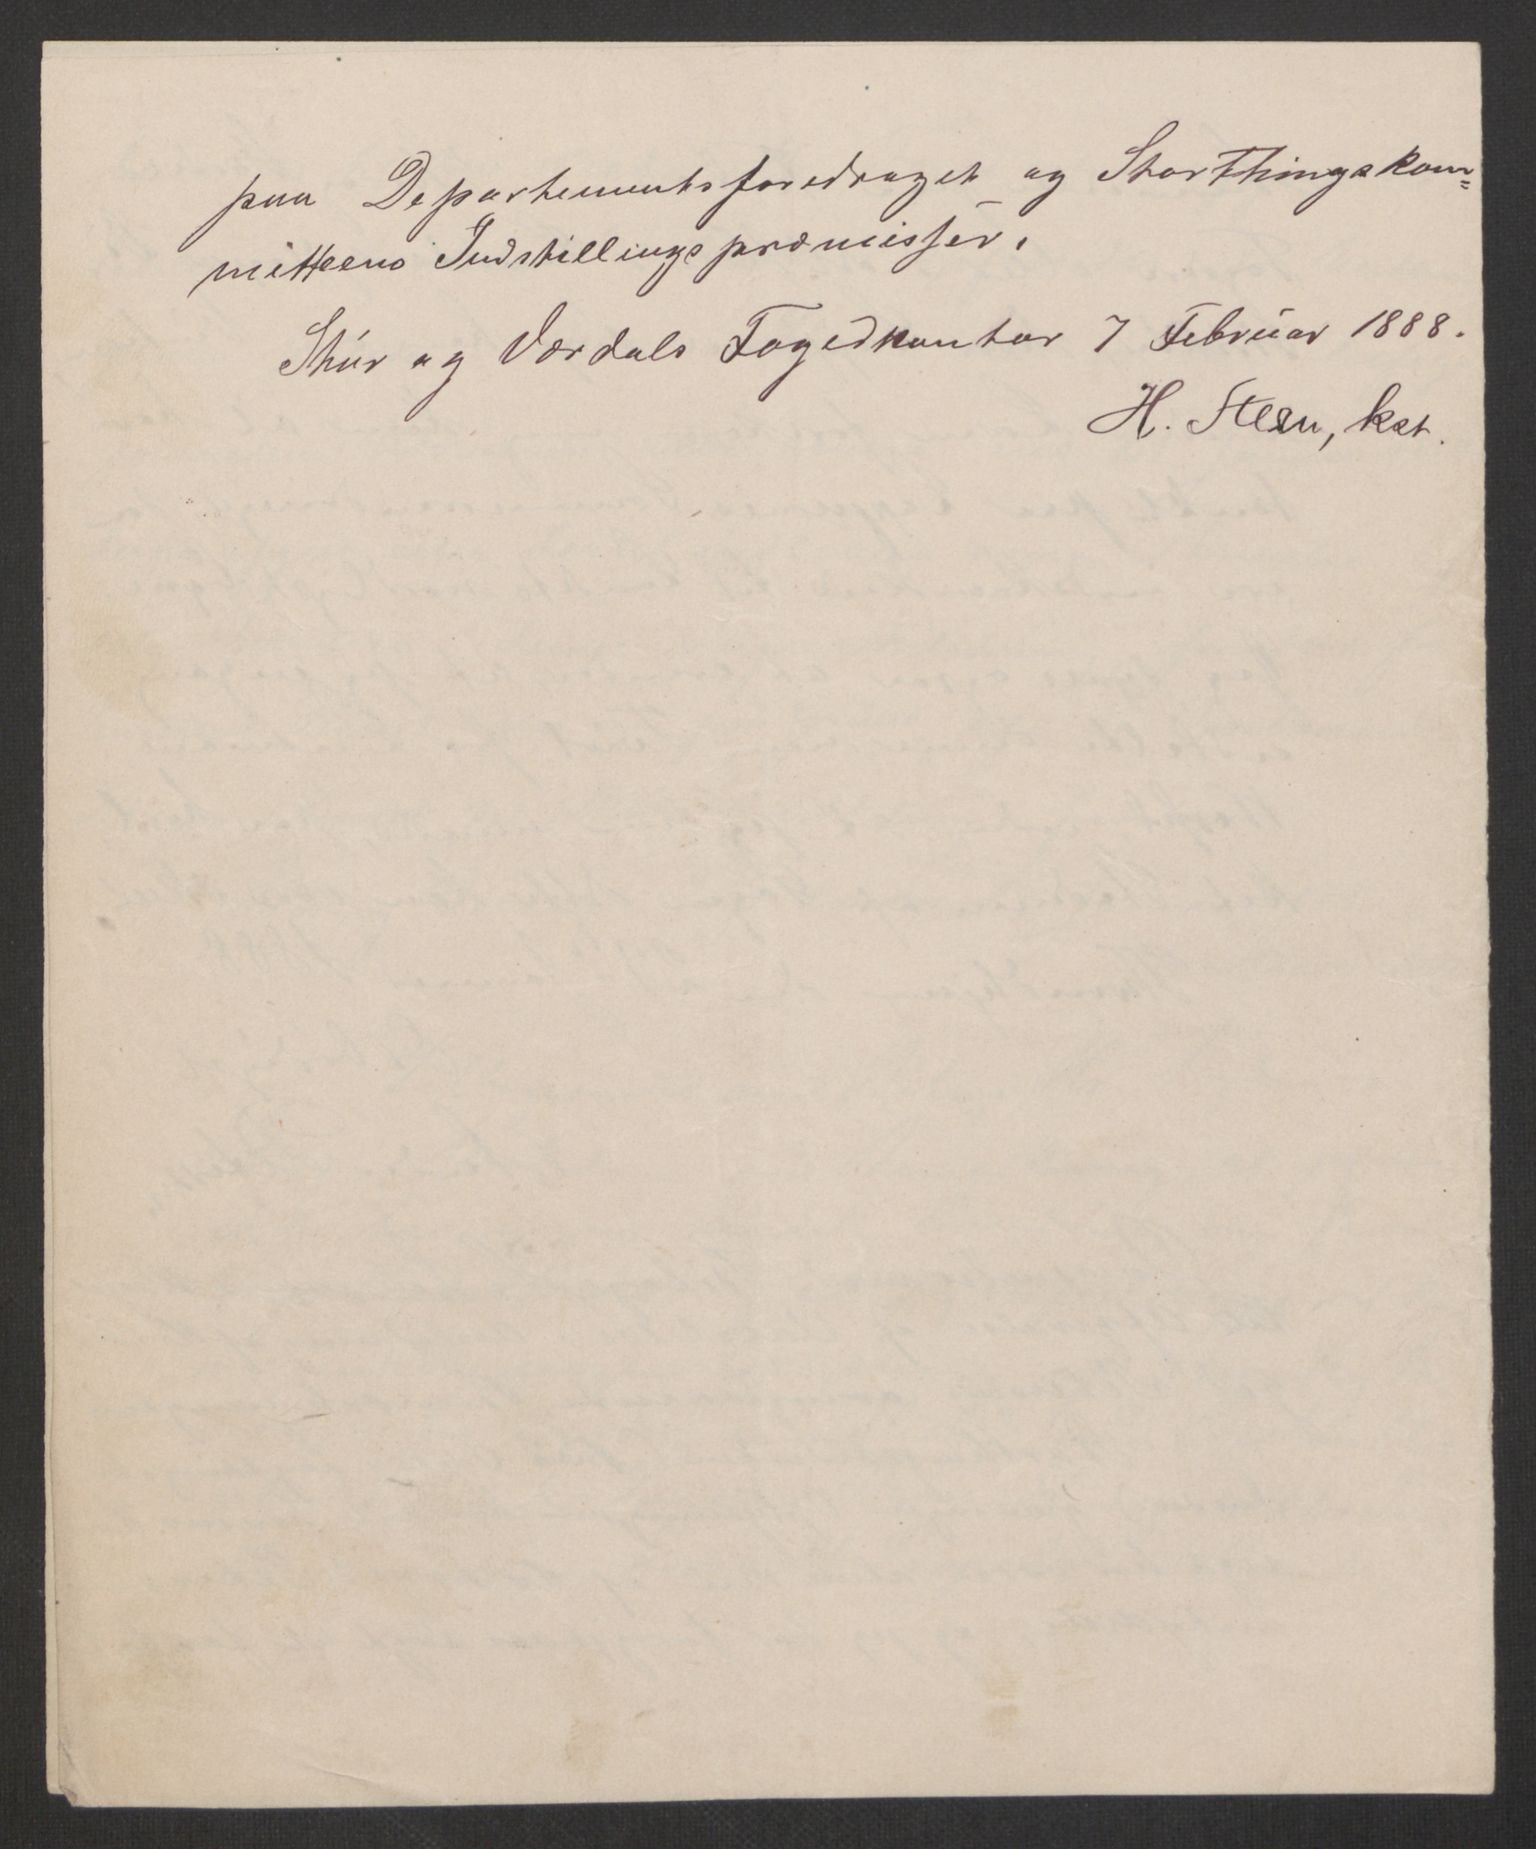 paa Departementsforedraget og Storthingskom=
mitteens Indstillingspræmisser.
Stør og Værdals Fogedkontor 7 Februar 1888.
H. Steen, kst.